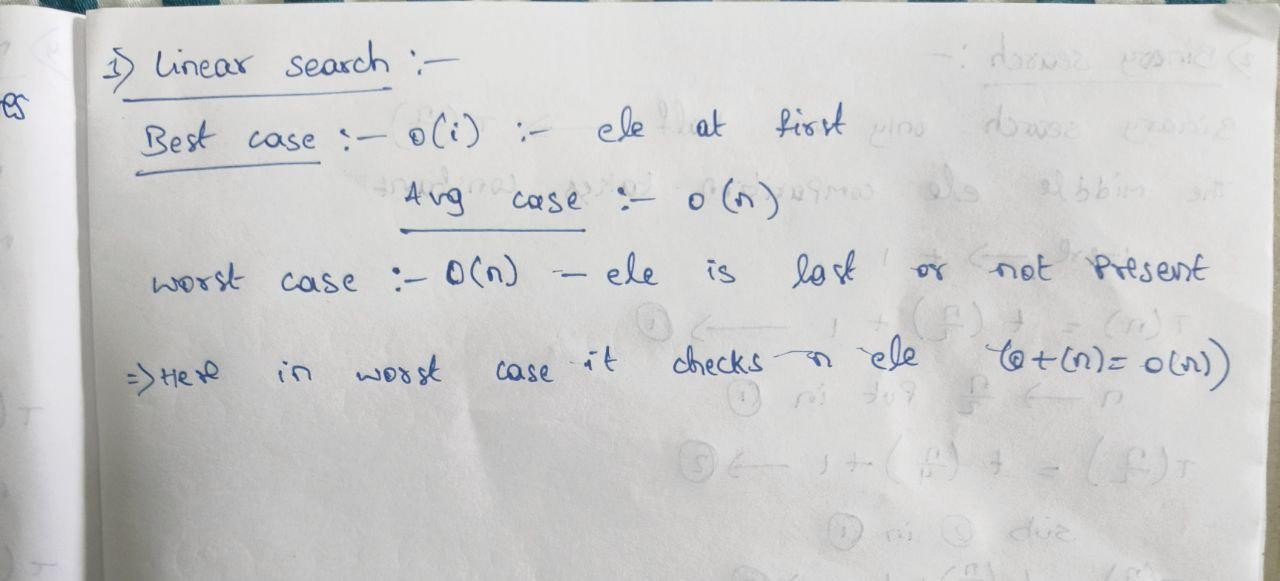 es
1) Linear search :-
Best case :- O(i) :- ele at first
Avg case :- O(n)
worst case :- O(n) - ele is last or not present
=> Here in worst case it checks n ele (t(n) = O(n))